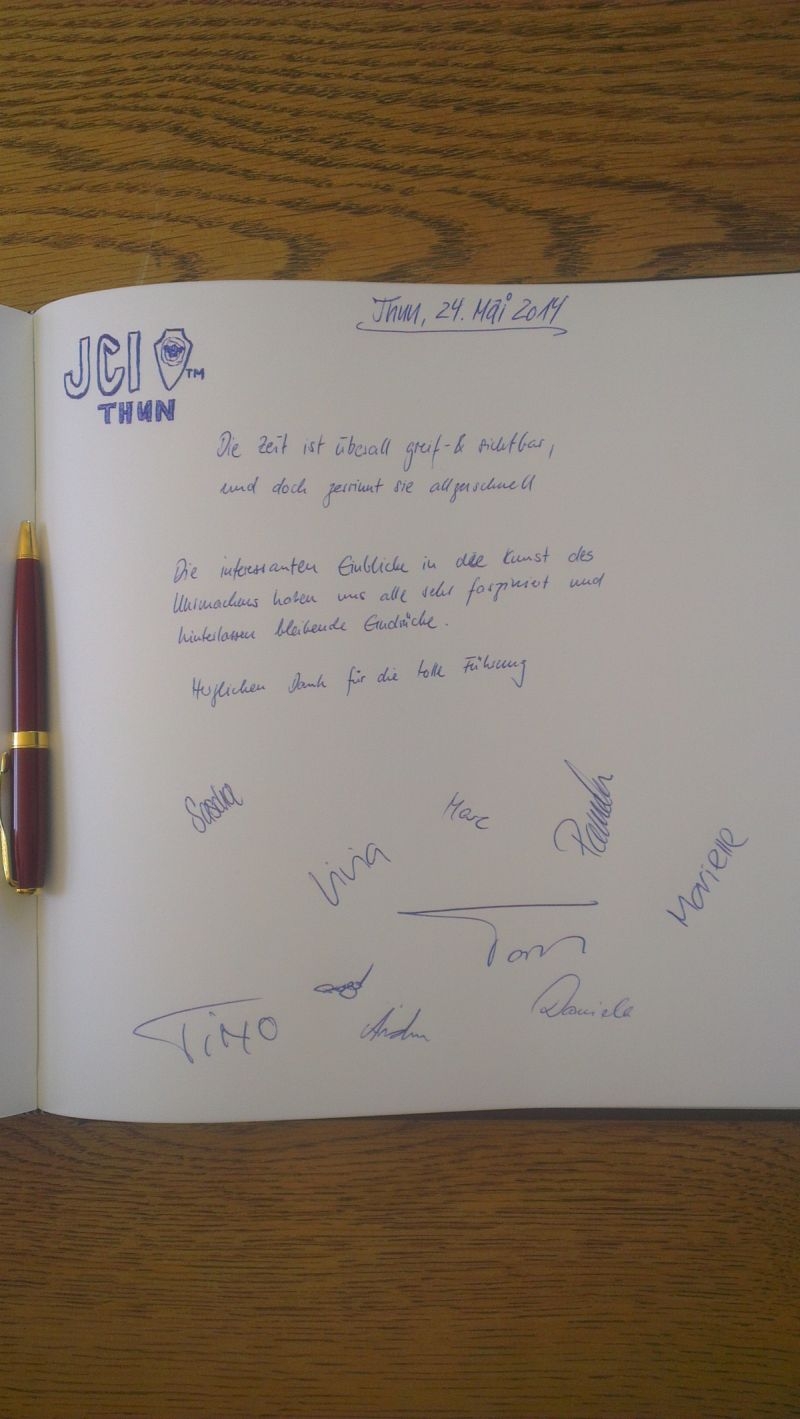 Thun, 24. Mai 2014
JCI TM
THUN
Die Zeit ist überall greif- & sichtbar,
und doch zerrinnt sie allzuschnell
Die interessanten Einblicke in die Kunst des
Uhrmachens haben uns alle sehr fasziniert und
hinterlassen bleibende Eindrücke.
Herzlichen Dank für die tolle Führung
Sascha
Marc
Livia
Marielle
Daniela
TiMO